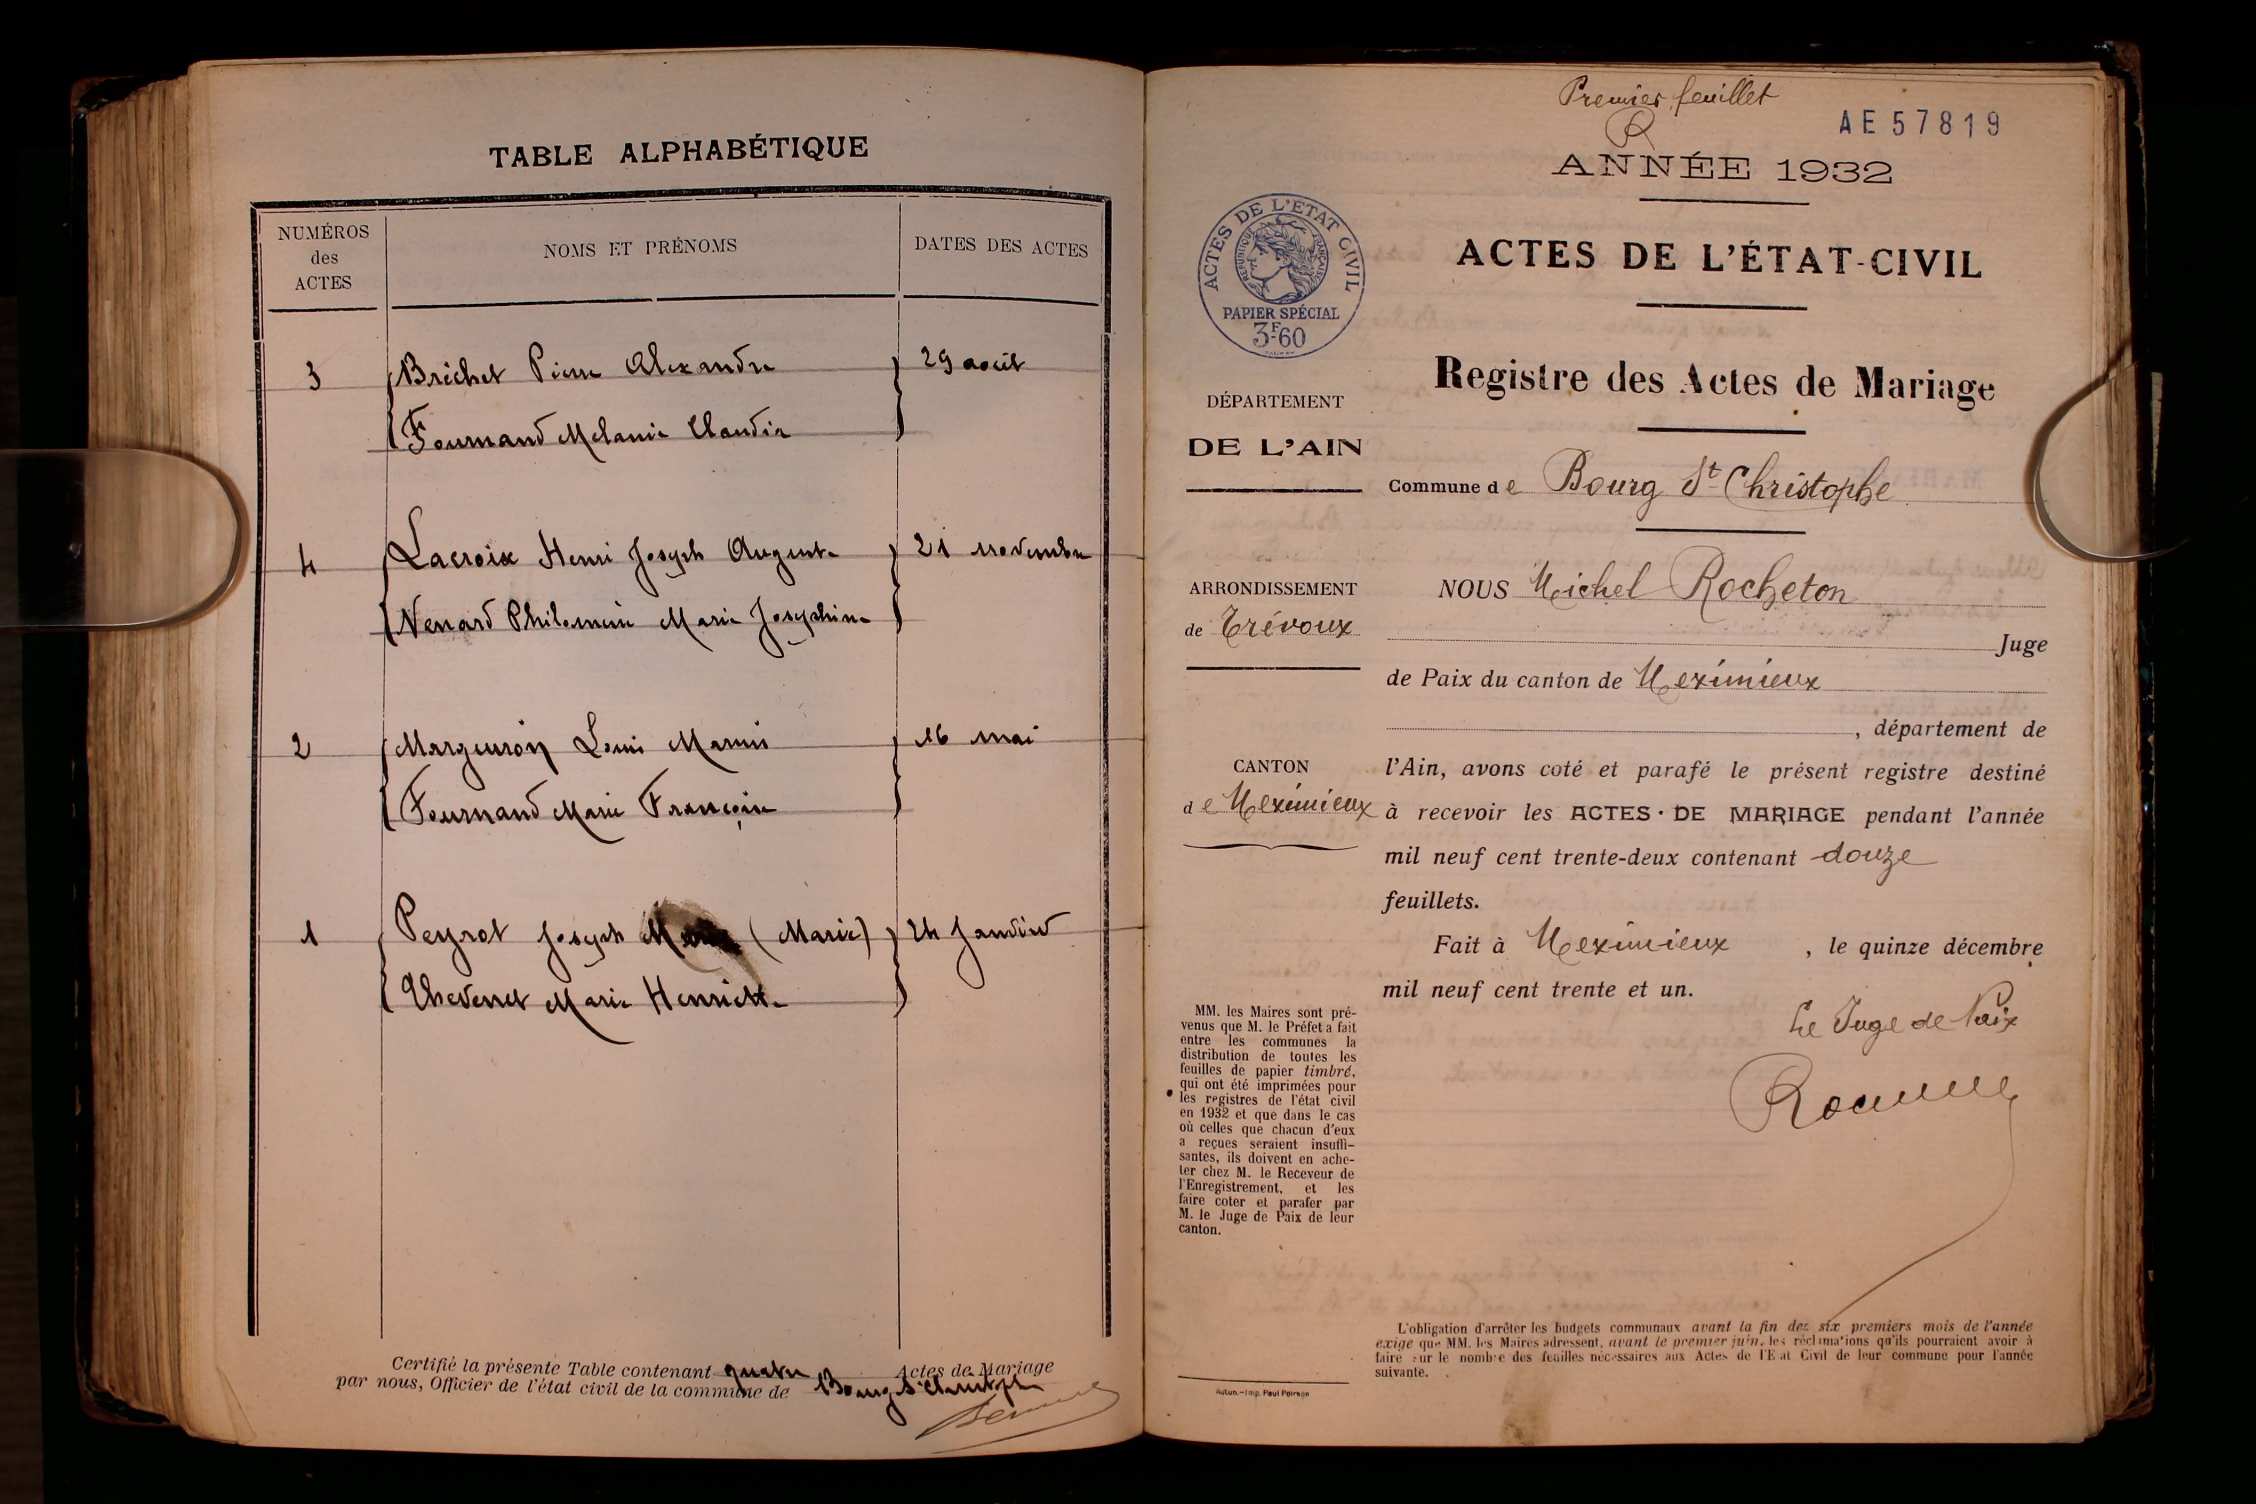 TABLE ALPHABÉTIQUE
NUMÉROS
des
ACTES
NOMS ET PRÉNOMS
DATES DES ACTES
3 Brichet Pierre Alexandre 29 août
Fournand Melanie Claudia
4 Lacroix Henri Joseph August. 21 novembre
Nenard Philomene Marie Josephine
2 Margueron Louis Marius 16 mai
Fournand Marie Françoise
1 Peyrot Joseph (Marie) 24 Janvier
Thevenet Marie Henriette
Certifié la présente Table contenant quatre Actes de Mariage
par nous, Officier de l'état civil de la commune de Bourg St Christophe
Premier feuillet
AE 57819
ANNÉE 1932
ACTES DE L'ETAT CIVIL
REPUBLIQUE FRANÇAISE
PAPIER SPÉCIAL
3F.60
ACTES DE L'ÉTAT-CIVIL
Registre des Actes de Mariage
DÉPARTEMENT
DE L'AIN
Commune de Bourg St Christophe
ARRONDISSEMENT
de Trévoux
CANTON
de Meximieux
NOUS Michel Rocheton
Juge
de Paix du canton de Meximieux
, département de
l'Ain, avons coté et parafé le présent registre destiné
à recevoir les ACTES · DE MARIAGE pendant l'année
mil neuf cent trente-deux contenant douze
feuillets.
Fait à Meximieux , le quinze décembre
mil neuf cent trente et un.
Le Juge de Paix
MM. les Maires sont pré-
venus que M. le Préfet a fait
entre les communes la
distribution de toutes les
feuilles de papier timbré,
qui ont été imprimées pour
les registres de l'état civil
en 1932 et que dans le cas
où celles que chacun d'eux
a reçues seraient insuffi-
santes, ils doivent en ache-
ter chez M. le Receveur de
l'Enregistrement, et les
faire coter et parafer par
M. le Juge de Paix de leur
canton.
L'obligation d'arrêter les budgets communaux avant la fin des six premiers mois de l'année
exige que MM. les Maires adressent, avant le premier juin, les réclamations qu'ils pourraient avoir à
faire sur le nombre des feuilles nécessaires aux Actes de l'Etat Civil de leur commune pour l'année
suivante.
Autun.—Imp. Paul Poirson